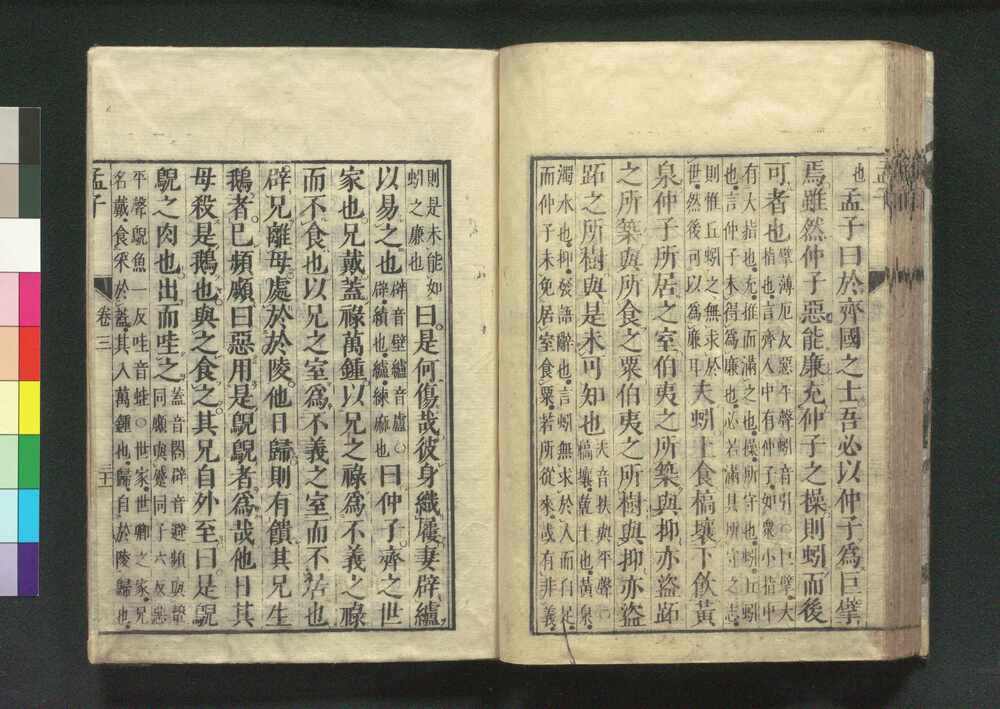 也
孟子曰於齊國之士吾必以仲子爲巨擘
焉雖然仲子惡能廉充仲子之操則蚓而後
可者也
擘薄厄反惡平聲蚓音引○巨擘大
指也言齊人中有仲子如衆小指中
有大指也充推而滿之也操所守也蚓丘蚓
也言仲子未得爲廉也必若滿其所守之志
則惟丘蚓之無求於
世然後可以爲廉耳
夫蚓上食槁壤下飮黃
泉仲子所居之室伯夷之所築與抑亦盜跖
之所築與所食之粟伯夷之所樹與抑亦盜
跖之所樹與是未可知也
夫音扶與平聲○
槁壤乾土也黃泉
濁水也抑發語辭也言蚓無求於人而自足
而仲子未免居室食粟若所從來或有非義
則是未能如
蚓之廉也
曰是何傷哉彼身織屨妻辟纑
以易之也
辟音壁纑音盧○
辟績也纑練麻也
曰仲子齊之世
家也兄戴蓋祿萬鍾以兄之祿爲不義之祿
而不食也以兄之室爲不義之室而不居也
辟兄離母處於於陵他日歸則有饋其兄生
鵝者已頻顣曰惡用是鶃鶃者爲哉他日其
母殺是鵝也與之食之其兄自外至曰是鶃
鶃之肉也出而哇之
蓋音閤辟音避頻與顰
同顣與蹙同子六反惡
平聲鶃魚一反哇音蛙○世家世卿之家兄
名戴食采於蓋其入萬鍾也歸自於陵歸也
孟子
卷三